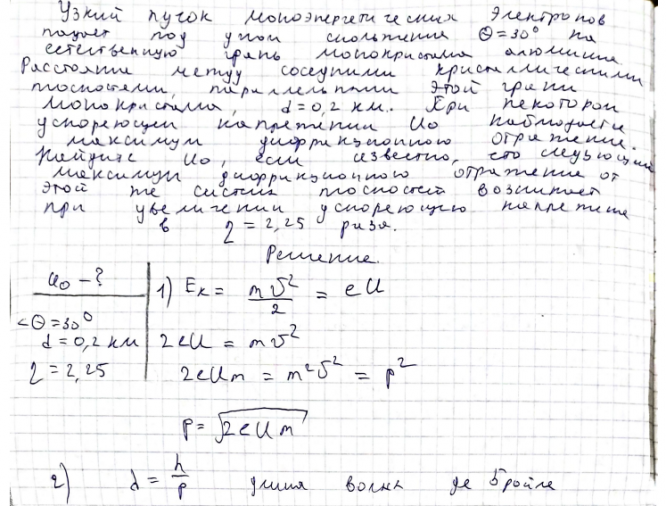 Узкий пучок моноэнергетических электронов
падает под углом скольжения Θ=30° на
естественную грань монокристалла алюминия
Расстояние между соседними кристаллическими
плоскостями, параллельными этой грани
монокристалла, d=0,2 нм. При некотором
ускоряющем напряжении U₀ наблюдается
максимум дифракционного отражения.
Найдите U₀, если известно, что следующий
максимум дифракционного отражения от
этой же системы плоскостей возникает
при увеличении ускоряющего напряжения
в η=2,25 раза.
Решение.
U₀ - ?
<Θ=30°
d=0,2 нм
η=2,25
1) Eₖ = mv²/2 = eU
2eU = mv²
2eUm = m²v² = p²
p = √2eUm
2) λ = h/p длина волны де Бройля